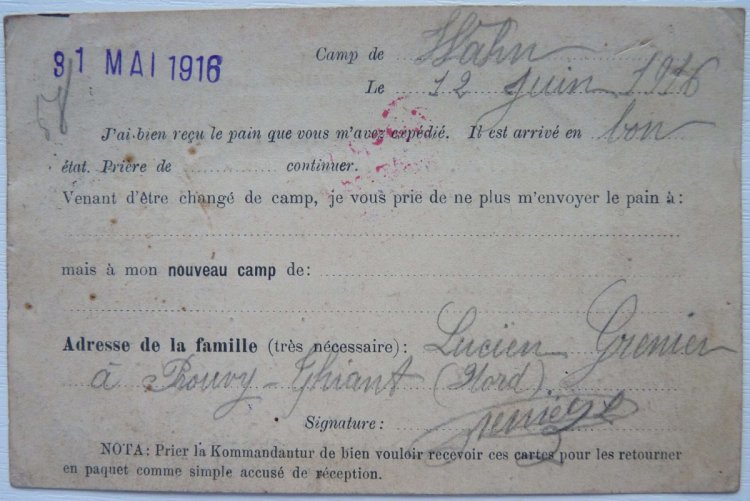 31 MAI 1916
Camp de Wahn
Le 12 Juin 1916
J'ai bien reçu le pain que vous m'avez expédié. Il est arrivé en bon
état. Prière de ............ continuer.
Venant d'être changé de camp, je vous prie de ne plus m'envoyer le pain à:
mais à mon nouveau camp de:
Adresse de la famille (très nécessaire): Lucien Grenier
à Rouvy-Thiant (Nord)
Signature: Grenier
NOTA: Prier la Kommandantur de bien vouloir recevoir ces cartes pour les retourner
en paquet comme simple accusé de réception.